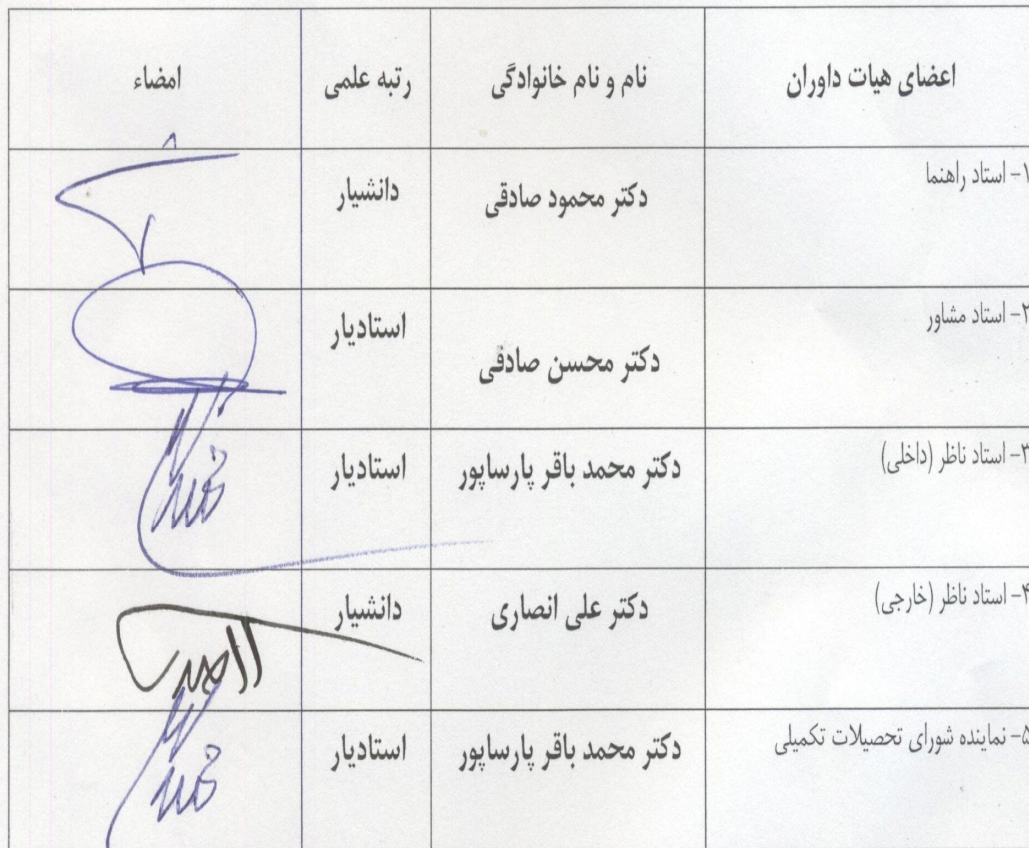 اعضای هیات داوران نام و نام خانوادگی رتبه علمی امضاء
۱- استاد راهنما دکتر محمود صادقی دانشیار
۲- استاد مشاور دکتر محسن صادقی استادیار
۳- استاد ناظر (داخلی) دکتر محمد باقر پارساپور استادیار
۴- استاد ناظر (خارجی) دکتر علی انصاری دانشیار
۵- نماینده شورای تحصیلات تکمیلی دکتر محمد باقر پارساپور استادیار